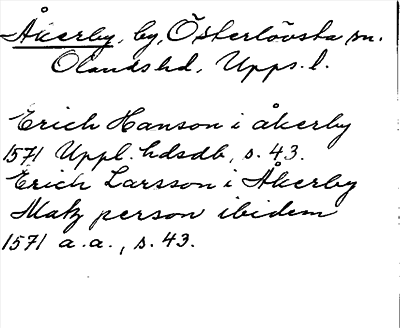 Åkerby, by, Österlövsta sn.
Olands hd, Upps. l.
Erich Hanson i åkerby
1571 Uppl. hdsdb, s. 43.
Erich Larsson i Åkerby
Matz person ibidem
1571 a.a., s. 43.